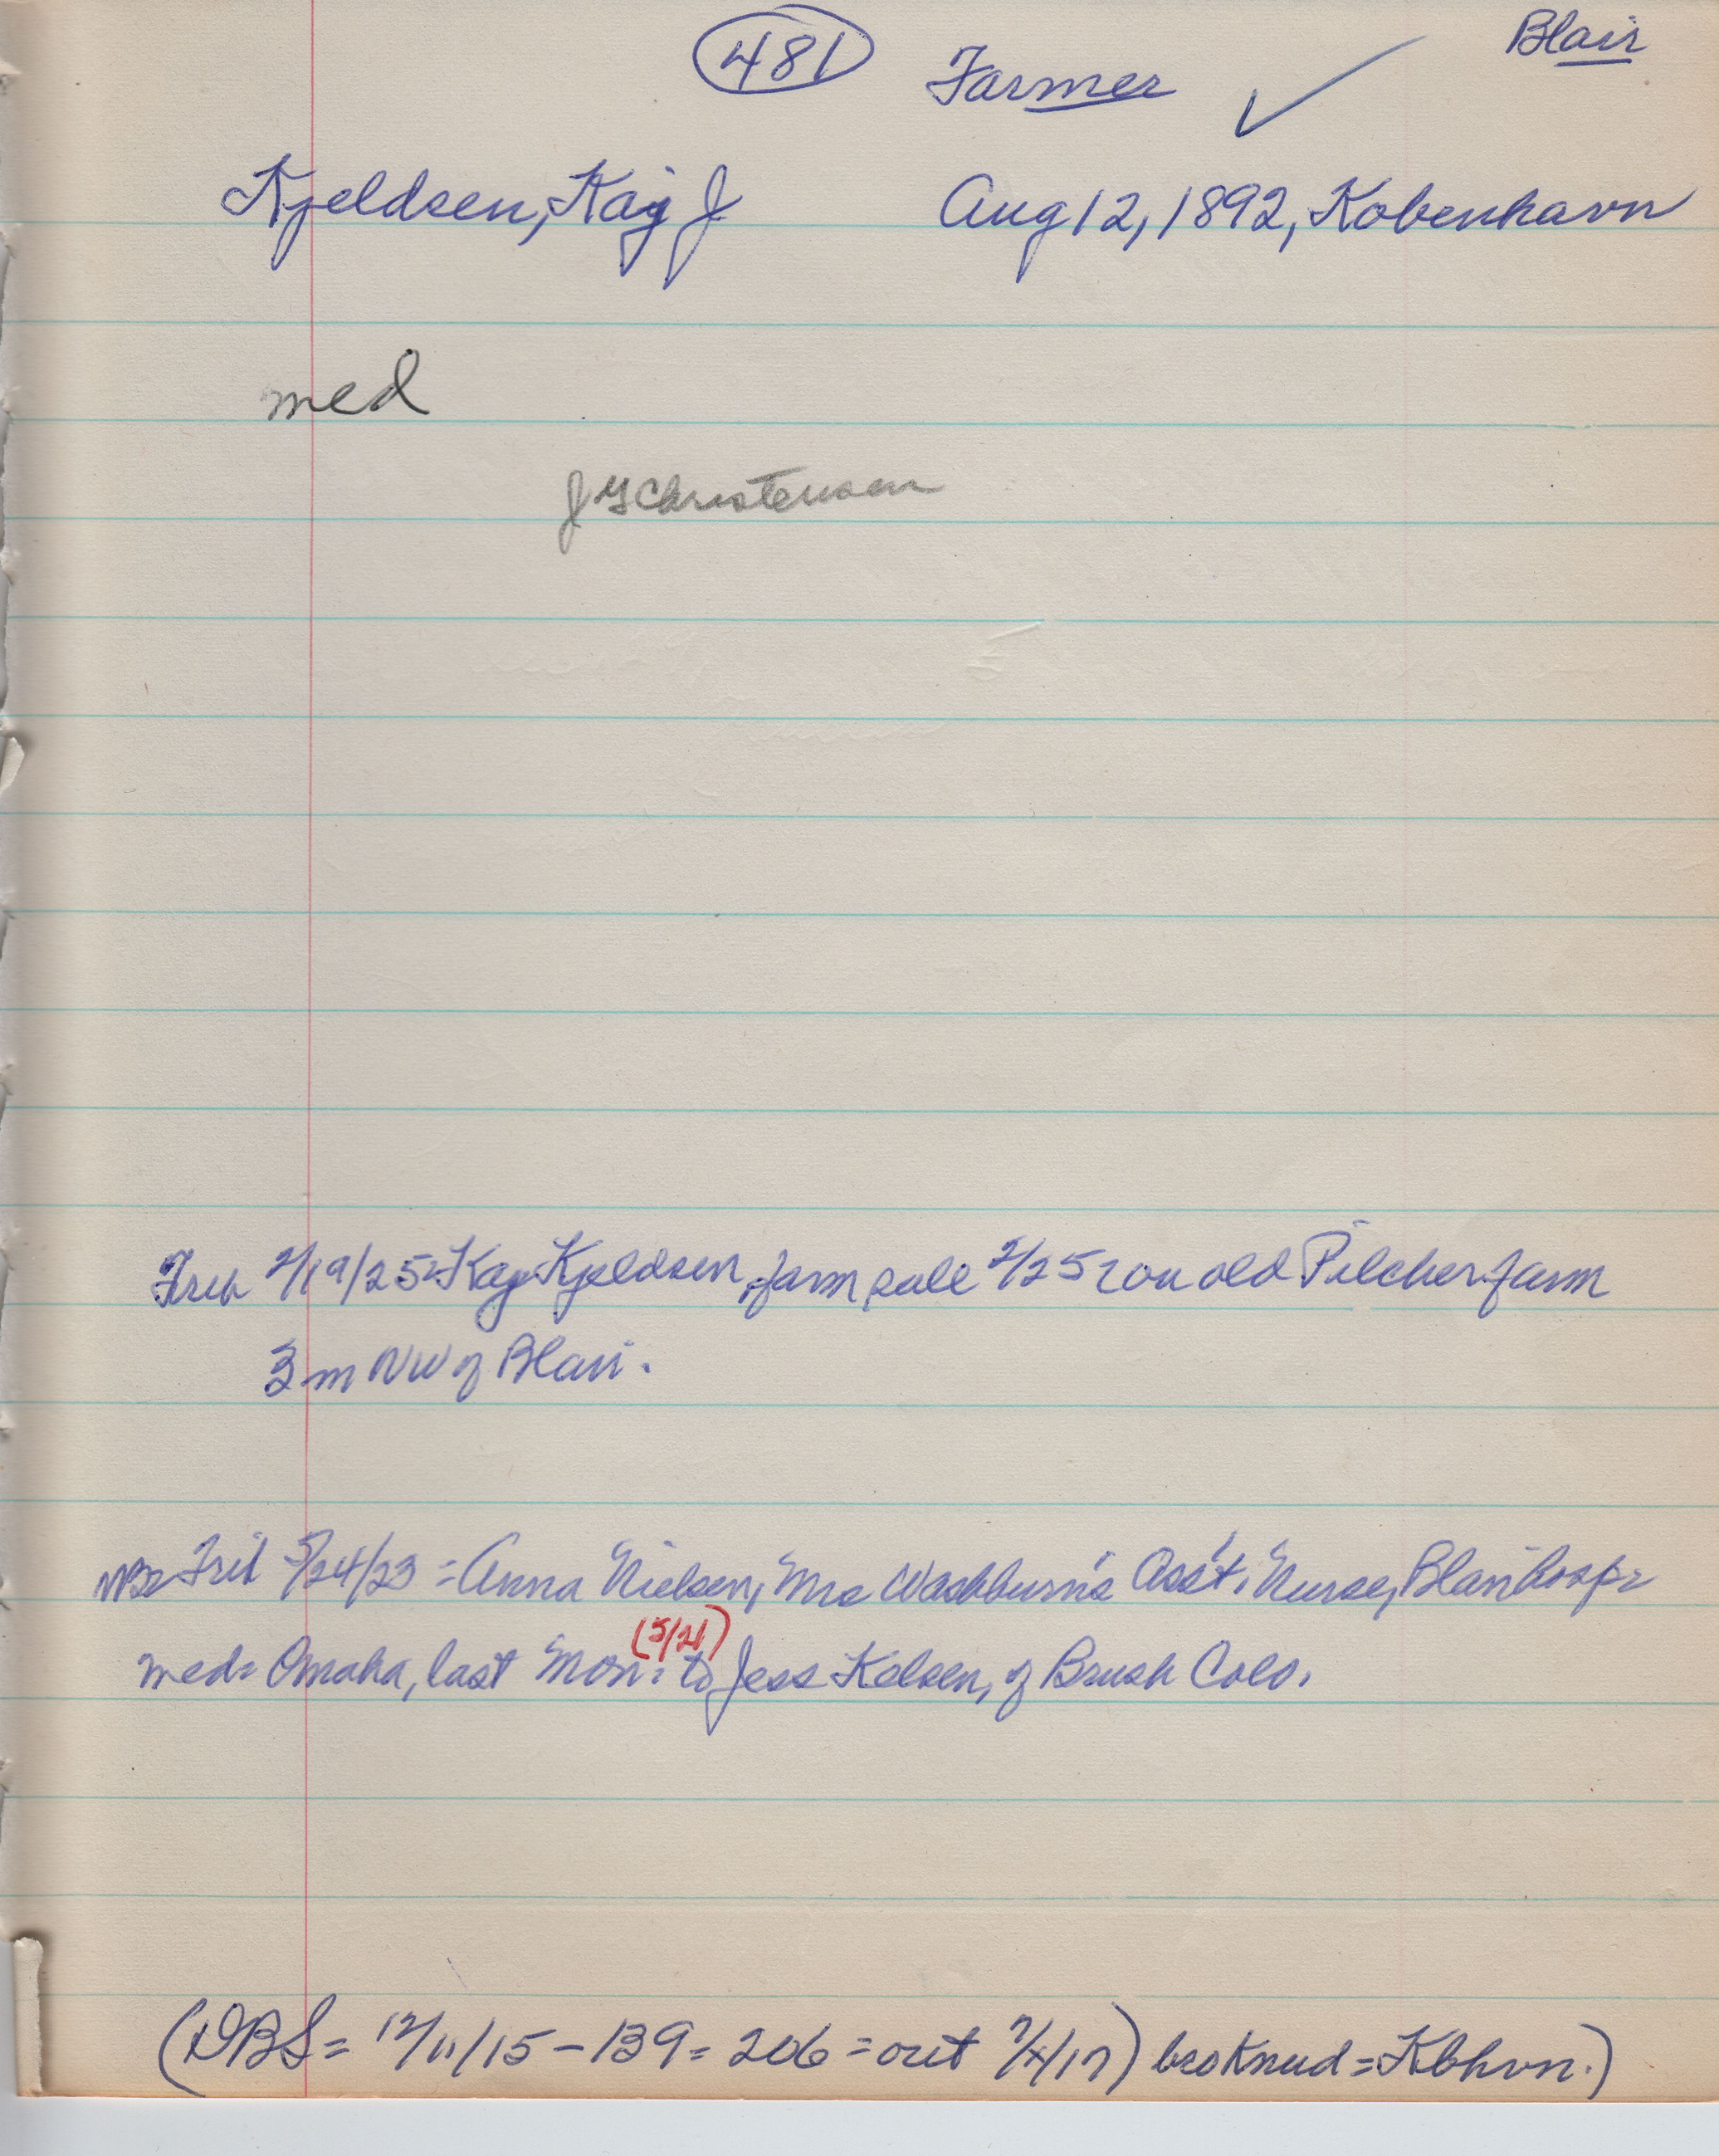 481 Farmer ✓ Blair
Kjeldsen, Kaj J Aug 12, 1892, Kobenhavn
med
J G Christensen
2/19/25 = Kaj Kjeldsen, farm sale 2/25 = on old Pilcher farm
3 m NW of Blair.
5/24/23 = Anna Nielsen, Mrs Washburn's Ass't. Nurse, Blair hosp =
med = Omaha, last Mon: (5/21) to Jess Kelsen, of Brush Colo.
(DBS = 12/11/15 - 139 = 206 = out 7/4/17) bro Knud = Kbhvn.)